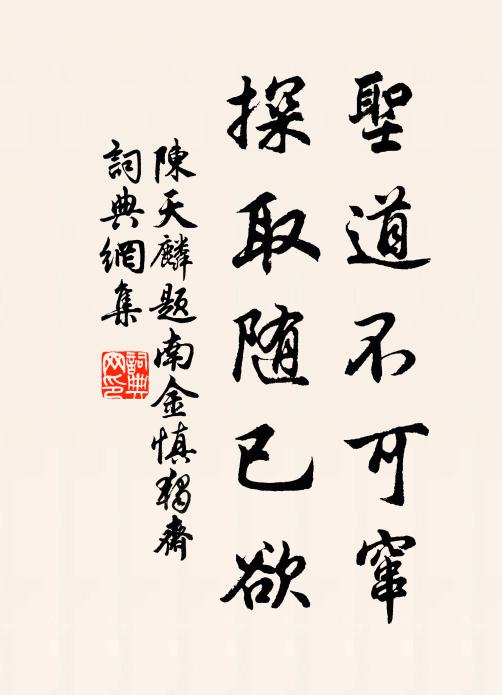 聖道不可窜
探取随已欲
陳天麟题南金慎獨齋
詞典網集
詞典
网印